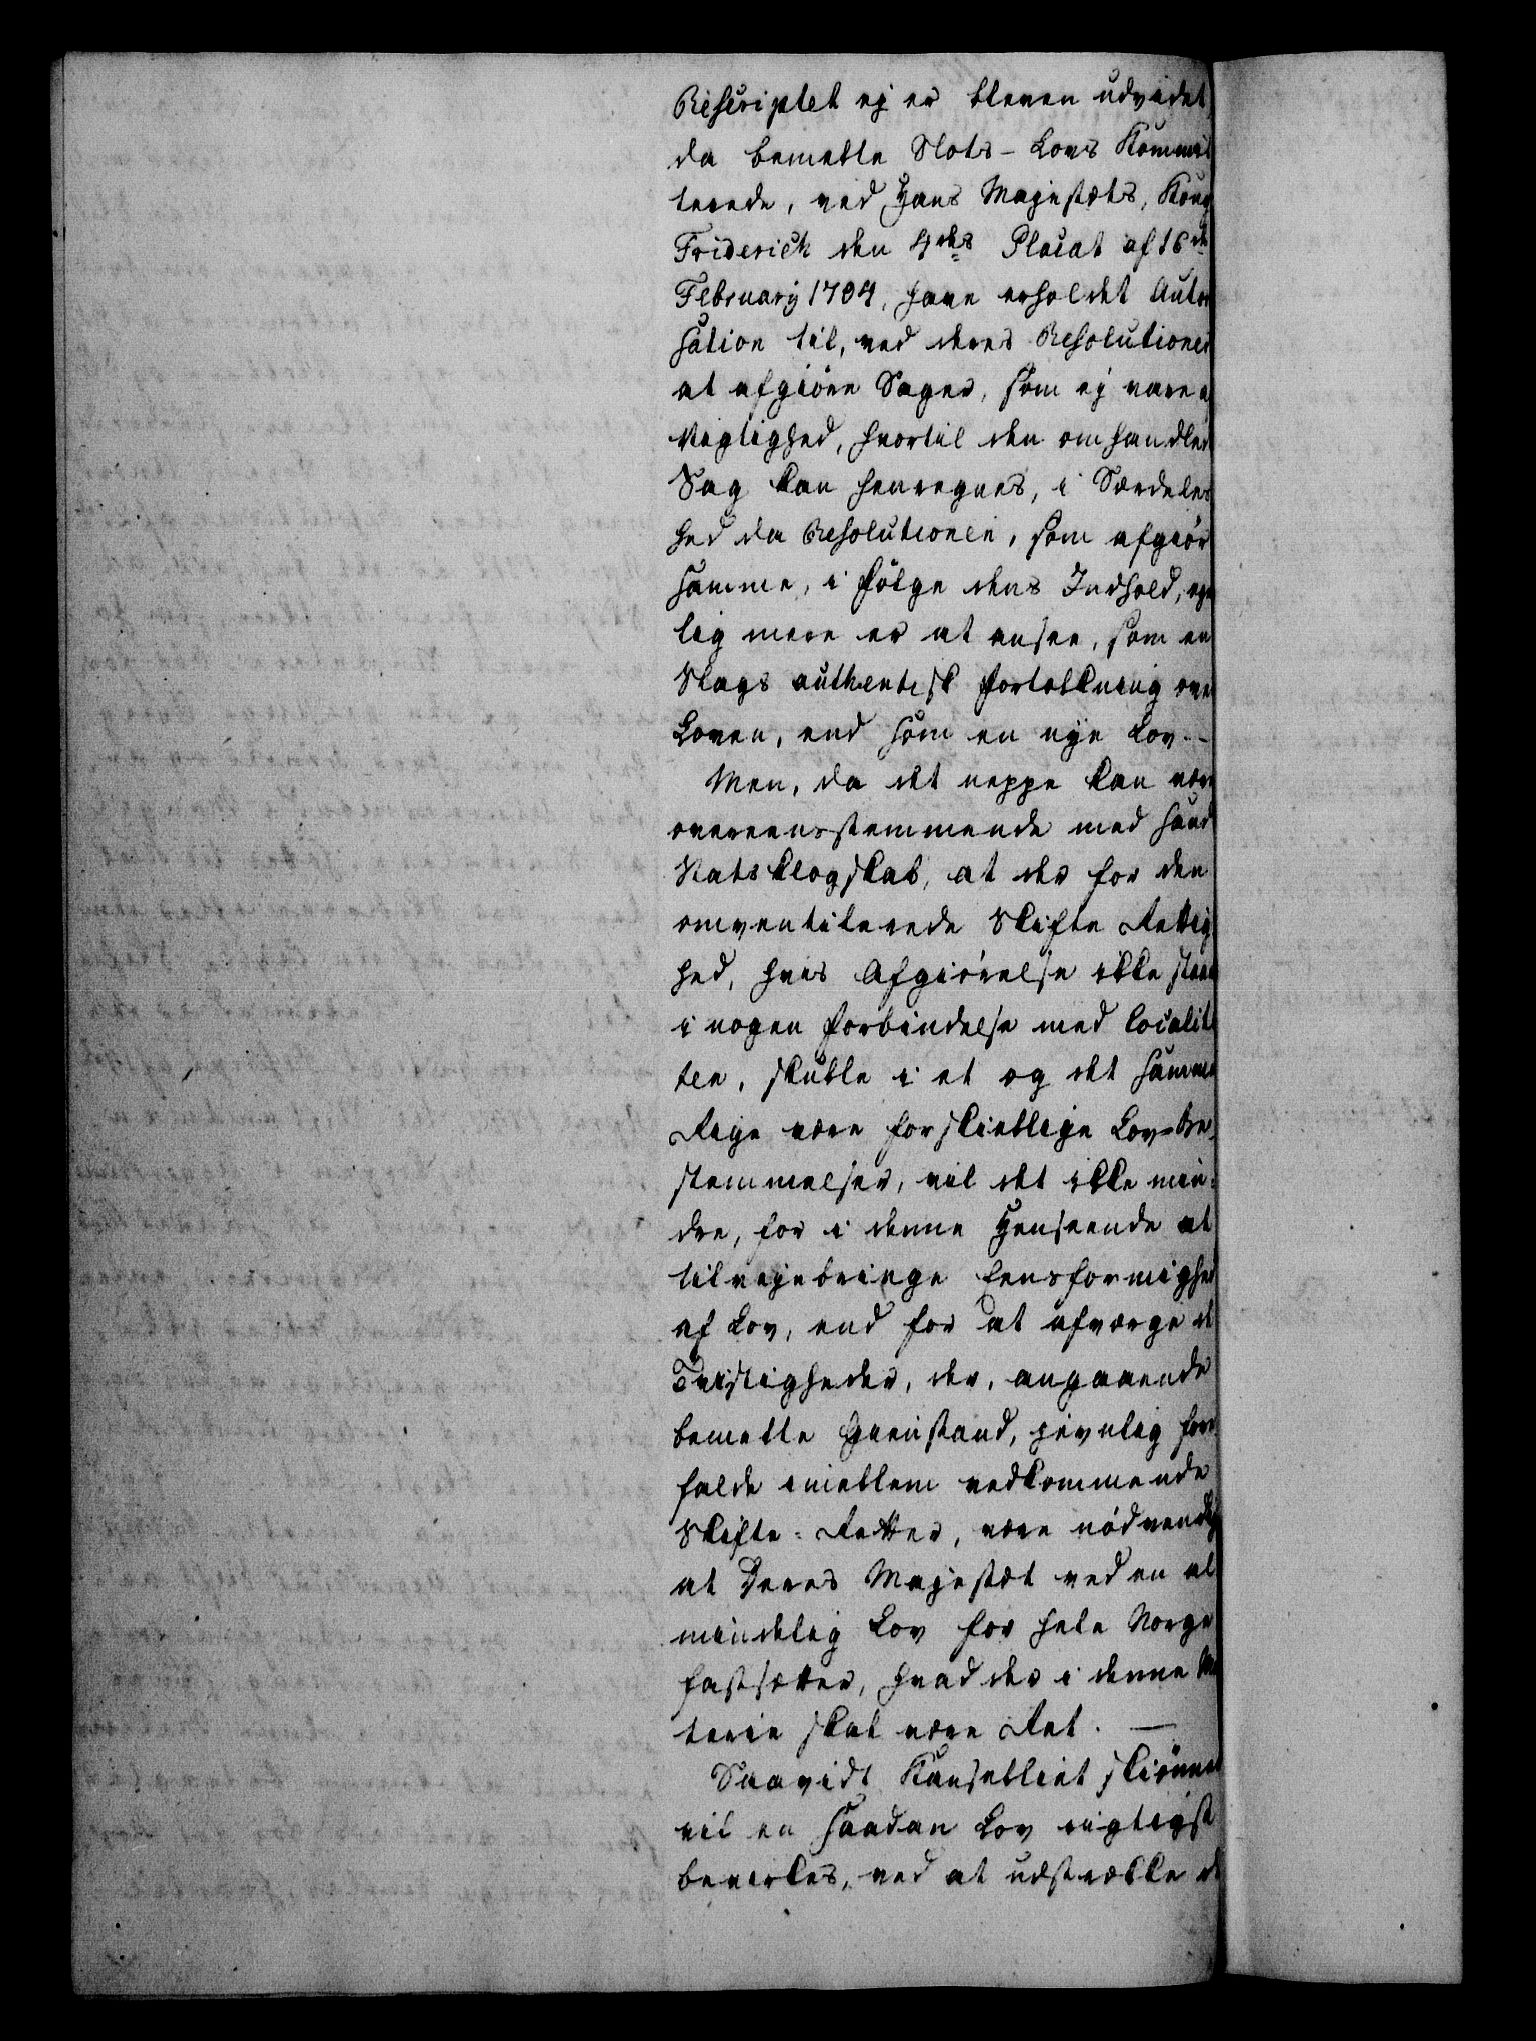 Rescriptet ej er bleven udvidet,
da bemelte Slots-Lovs Kommit
terede, ved Hans Majestæts, Kong
Friderich den 4des Placat af 16de
February 1704, have erholdet Autor
sation til, ved deres Resolutioner
at afgiöre Sager, som ej vare a
Vigtighed, hvortil den omhandlede
Sag kan henregnes, i Særdeles
hed da Resolutionen, som afgiör
samme, i fölge dens Indhold, ege
lig mere er at ansee, som en
Slags authentisk fortolkning over
Loven, end som en nye Lov. -
Men, da det neppe kan være
overeensstemmende med sand
Statsklogskab, at der for den
omventilerede Skifte Rettig
hed, hvis Afgiörelse ikke staae
i nogen forbindelse med localit
ten, skulle i et og det samme
Rige være forskiellige Lov=Be
stemmelser, vil det ikke min:
dre, for i denne Henseende at
tilvejebringe Eensformighed
af Lov, end for at afværge de
Tvistigheder, der, angaaende
bemelte Gienstand, jevnlig fore
falde imellem vedkommende
Skifte=Retter, være nödvendigt
at Deres Majestæt ved en al
mindelig Lov for hele Norge
fastsætter, hvad der i denne Ma
terie skal være Ret. —
Saavidt Kanselliet skiönner
vil en saadan Lov rigtigst
bevirkes, ved at udstrække d